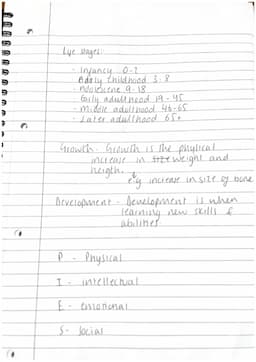 Life stages:
- Infancy 0-2
- Early childhood 3-8
- Adolescene 9-18
- Early adulthood 19-45
- Middle adulthood 46-65
- Later adulthood 65+
Growth - Growth is the physical
increase in size weight and
heigth.
e.g increase in size of bone
Development - Development is when
learning new skills &
abilities
P - Physical
I - intellectual
E - emotional
S - Social